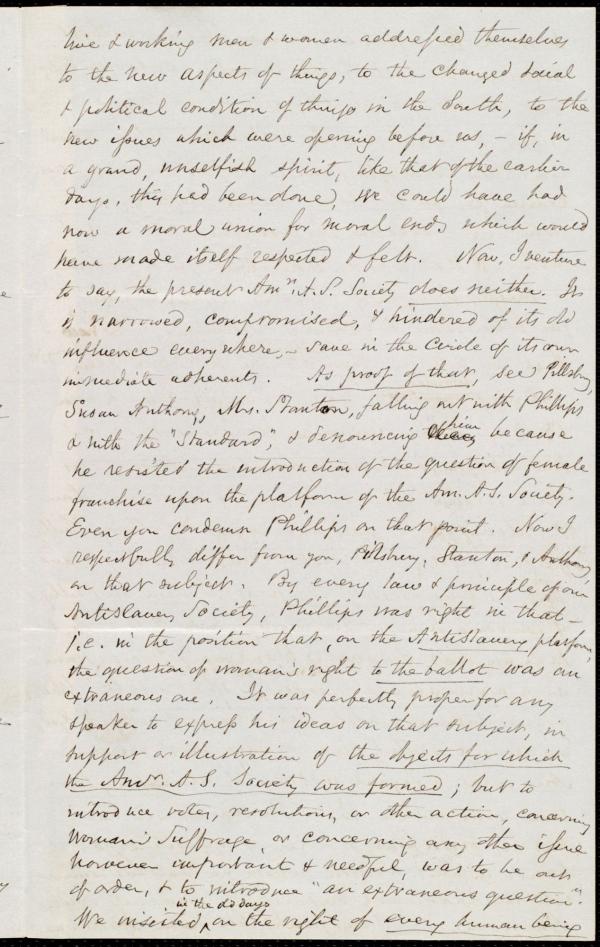 tive & working men & women addressed themselves
to the new aspects of things, to the changed social
& political condition of things in the South, to the
new issues which were opening before us, – if, in
a grand, unselfish spirit, like that of the earlier
days, this had been done, we could have had
now a moral union for moral ends which would
have made itself respected & felt. Now, I venture
to say, the present Amn. A.S. Society does neither. It
is narrowed, compromised, & hindered of its old
influence everywhere, – save in the circle of its own
immediate adherents. As proof of that, see Pillsbury,
Susan Anthony, Mrs. Stanton, falling out with Phillips
& with the "Standard", & denouncing him because
he resisted the introduction of the question of female
franchise upon the platform of the Am. A.S. Society.
Even you condemn Phillips on that point. Now I
respectfully differ from you, Pillsbury, Stanton, & Anthony,
on that subject. By every law & principle of our
Antislavery Society, Phillips was right in that –
i.e. in the position that, on the Antislavery platform,
the question of woman's right to the ballot was an
extraneous one. It was perfectly proper for any
speaker to express his ideas on that subject, in
support or illustration of the objects for which
the Amn. A.S. Society was formed; but to
introduce votes, resolutions, or other action, concerning
Woman's Suffrage, or concerning any other issue
however important & needful, was to be out
of order, & to introduce "an extraneous question".
We insisted in the old days, on the right of every human being